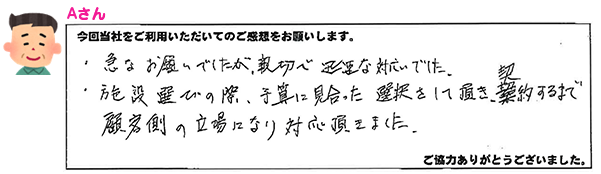 Aさん
今回当社をご利用いただいてのご感想をお願いします。
・急なお願いでしたが、親切で迅速な対応でした。
・施設選びの際、予算に見合った選択をして頂き、契約するまで
顧客側の立場になり対応頂きました。
ご協力ありがとうございました。